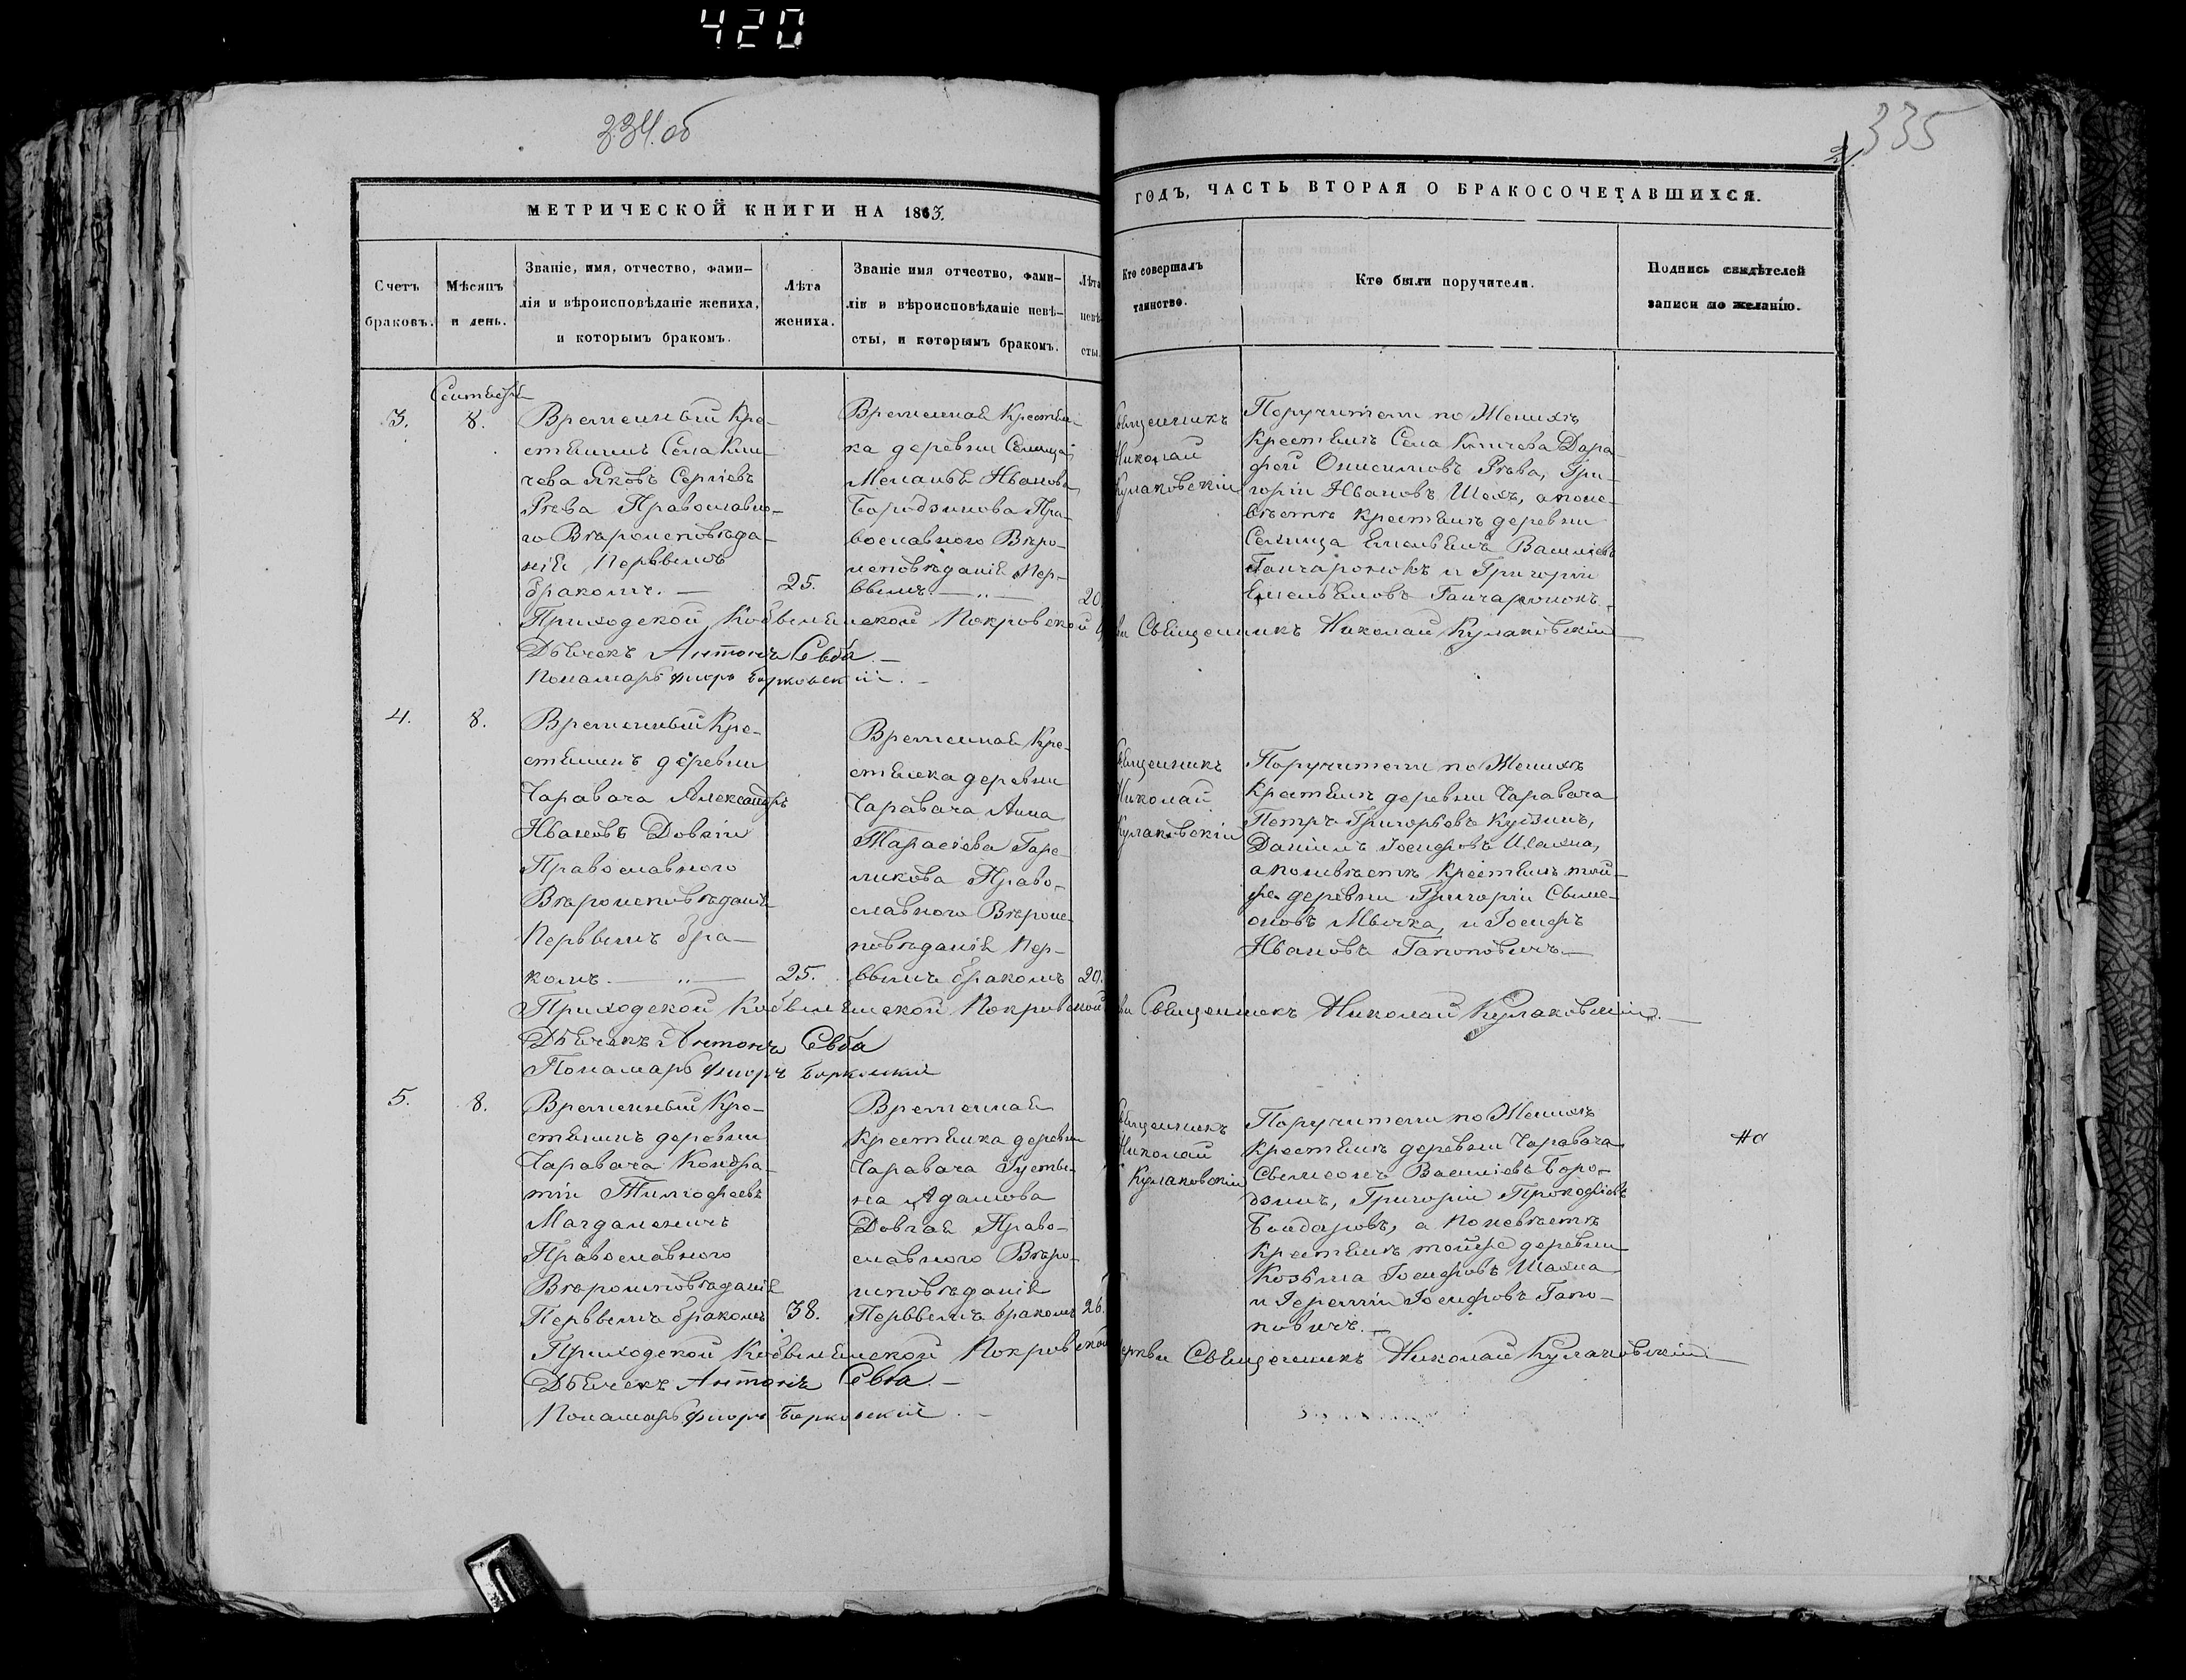 420
334 об
335
МЕТРИЧЕСКОЙ КНИГИ НА 1863.
ГОДЪ, ЧАСТЬ ВТОРАЯ О БРАКОСОЧЕТАВШИХСЯ.
Счетъ
браковъ.
Мѣсяцъ
и день.
Званіе, имя, отчество, фами-
лія и вѣроисповѣданіе жениха,
и которымъ бракомъ.
Лѣта
жениха.
Званіе имя отчество, фами-
лія и вѣроисповѣданіе невѣ-
сты, и которымъ бракомъ.
Лѣта
невѣ-
сты.
Кто совершалъ
таинство.
Кто были поручители.
Подпись свидѣтелей
записи по желанію.
3.
Сентября
8.
Временный Кре-
стьянинъ Села
Яковъ Сергіевъ
Рева Православно-
го Вѣроисповѣда-
нія Первымъ
бракомъ.
25.
Временная Крестьян-
ка деревни Селища
Иванова
Бородзинова Пра-
вославного Вѣро-
исповѣданія Пер-
вымъ
20
Священникъ
Николай
Кулаковскій
Поручители по Женихѣ
Крестьянъ Села Дара-
фей Онисимовъ Рѣва, Гри-
горій Ивановъ Шохъ, а поне-
вѣстѣ Крестьянъ деревни
Селища Емельянъ Василіевъ
Ганчаронокъ и Григорій
Емельяновъ Ганчаронокъ.
Приходской Покровской
Священникъ Николай Кулаковскій
Дьячекъ Антонъ Сѣвба.
Пономарь Флоръ Барковскій.
4.
8.
Временный Кре-
стьянинъ деревни
Чаравача Александръ
Ивановъ Довгій
Православного
Вѣроисповѣданія
Первымъ бра-
комъ
25.
Временная Кре-
стьянка деревни
Чаравача Анна
Тарасіева Гаре-
ликова Право-
славного Вѣроис-
повѣданія Пер-
вымъ бракомъ
20.
Священникъ
Николай
Кулаковскій
Поручители по Женихѣ
Крестьянъ деревни Чаравача
Петръ Григорьевъ
Даніилъ Іосифовъ Шахна,
а поневѣстѣ Крестьянъ той-
же деревни Григорій Сѣмі-
оновъ Мычка, и Іосифъ
Ивановъ Гапоновичъ.
Приходской Покровской
Священникъ Николай Кулаковскій.
Дьячекъ Антонъ Сѣвба
Пономарь Флоръ Барковскій
5.
8.
Временный Кре-
стьянинъ деревни
Чаравача Кондра-
тій Тимофеевъ
Магдаленичъ
Православного
Вѣроисповѣданія
Первымъ бракомъ
38.
Временная
Крестьянка деревни
Чаравача Густы-
на Адамова
Довгая Право-
славного Вѣро-
исповѣданія
Первымъ бракомъ
26.
Священникъ
Николай
Кулаковскій
Поручители по Женихѣ
Крестьянъ деревни Чаравача
Сѣмеонъ Василіевъ Боро-
дзинъ, Григорій Прокофіевъ
Бондаровъ, а поневѣстѣ
Крестьянъ тойже деревни
Козьма Іосифовъ Шахна
и Іеремій Іосифовъ Гапо-
новичъ.
Приходской Покровской
Церкви Священникъ Николай Кулаковскій
Дьячекъ Антонъ Сѣвба.
Пономарь Флоръ Барковскій.